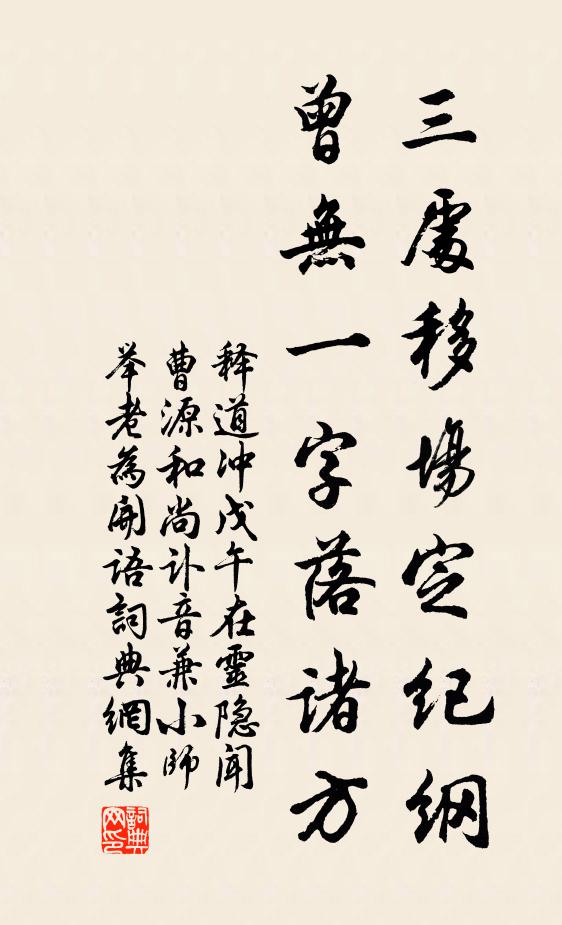 三處移場定纪纲
曾無一字落诸方
释道冲戊午在靈隐闻
曹源和尚讣音蒹小師
举老為開语詞典網集
詞典網印